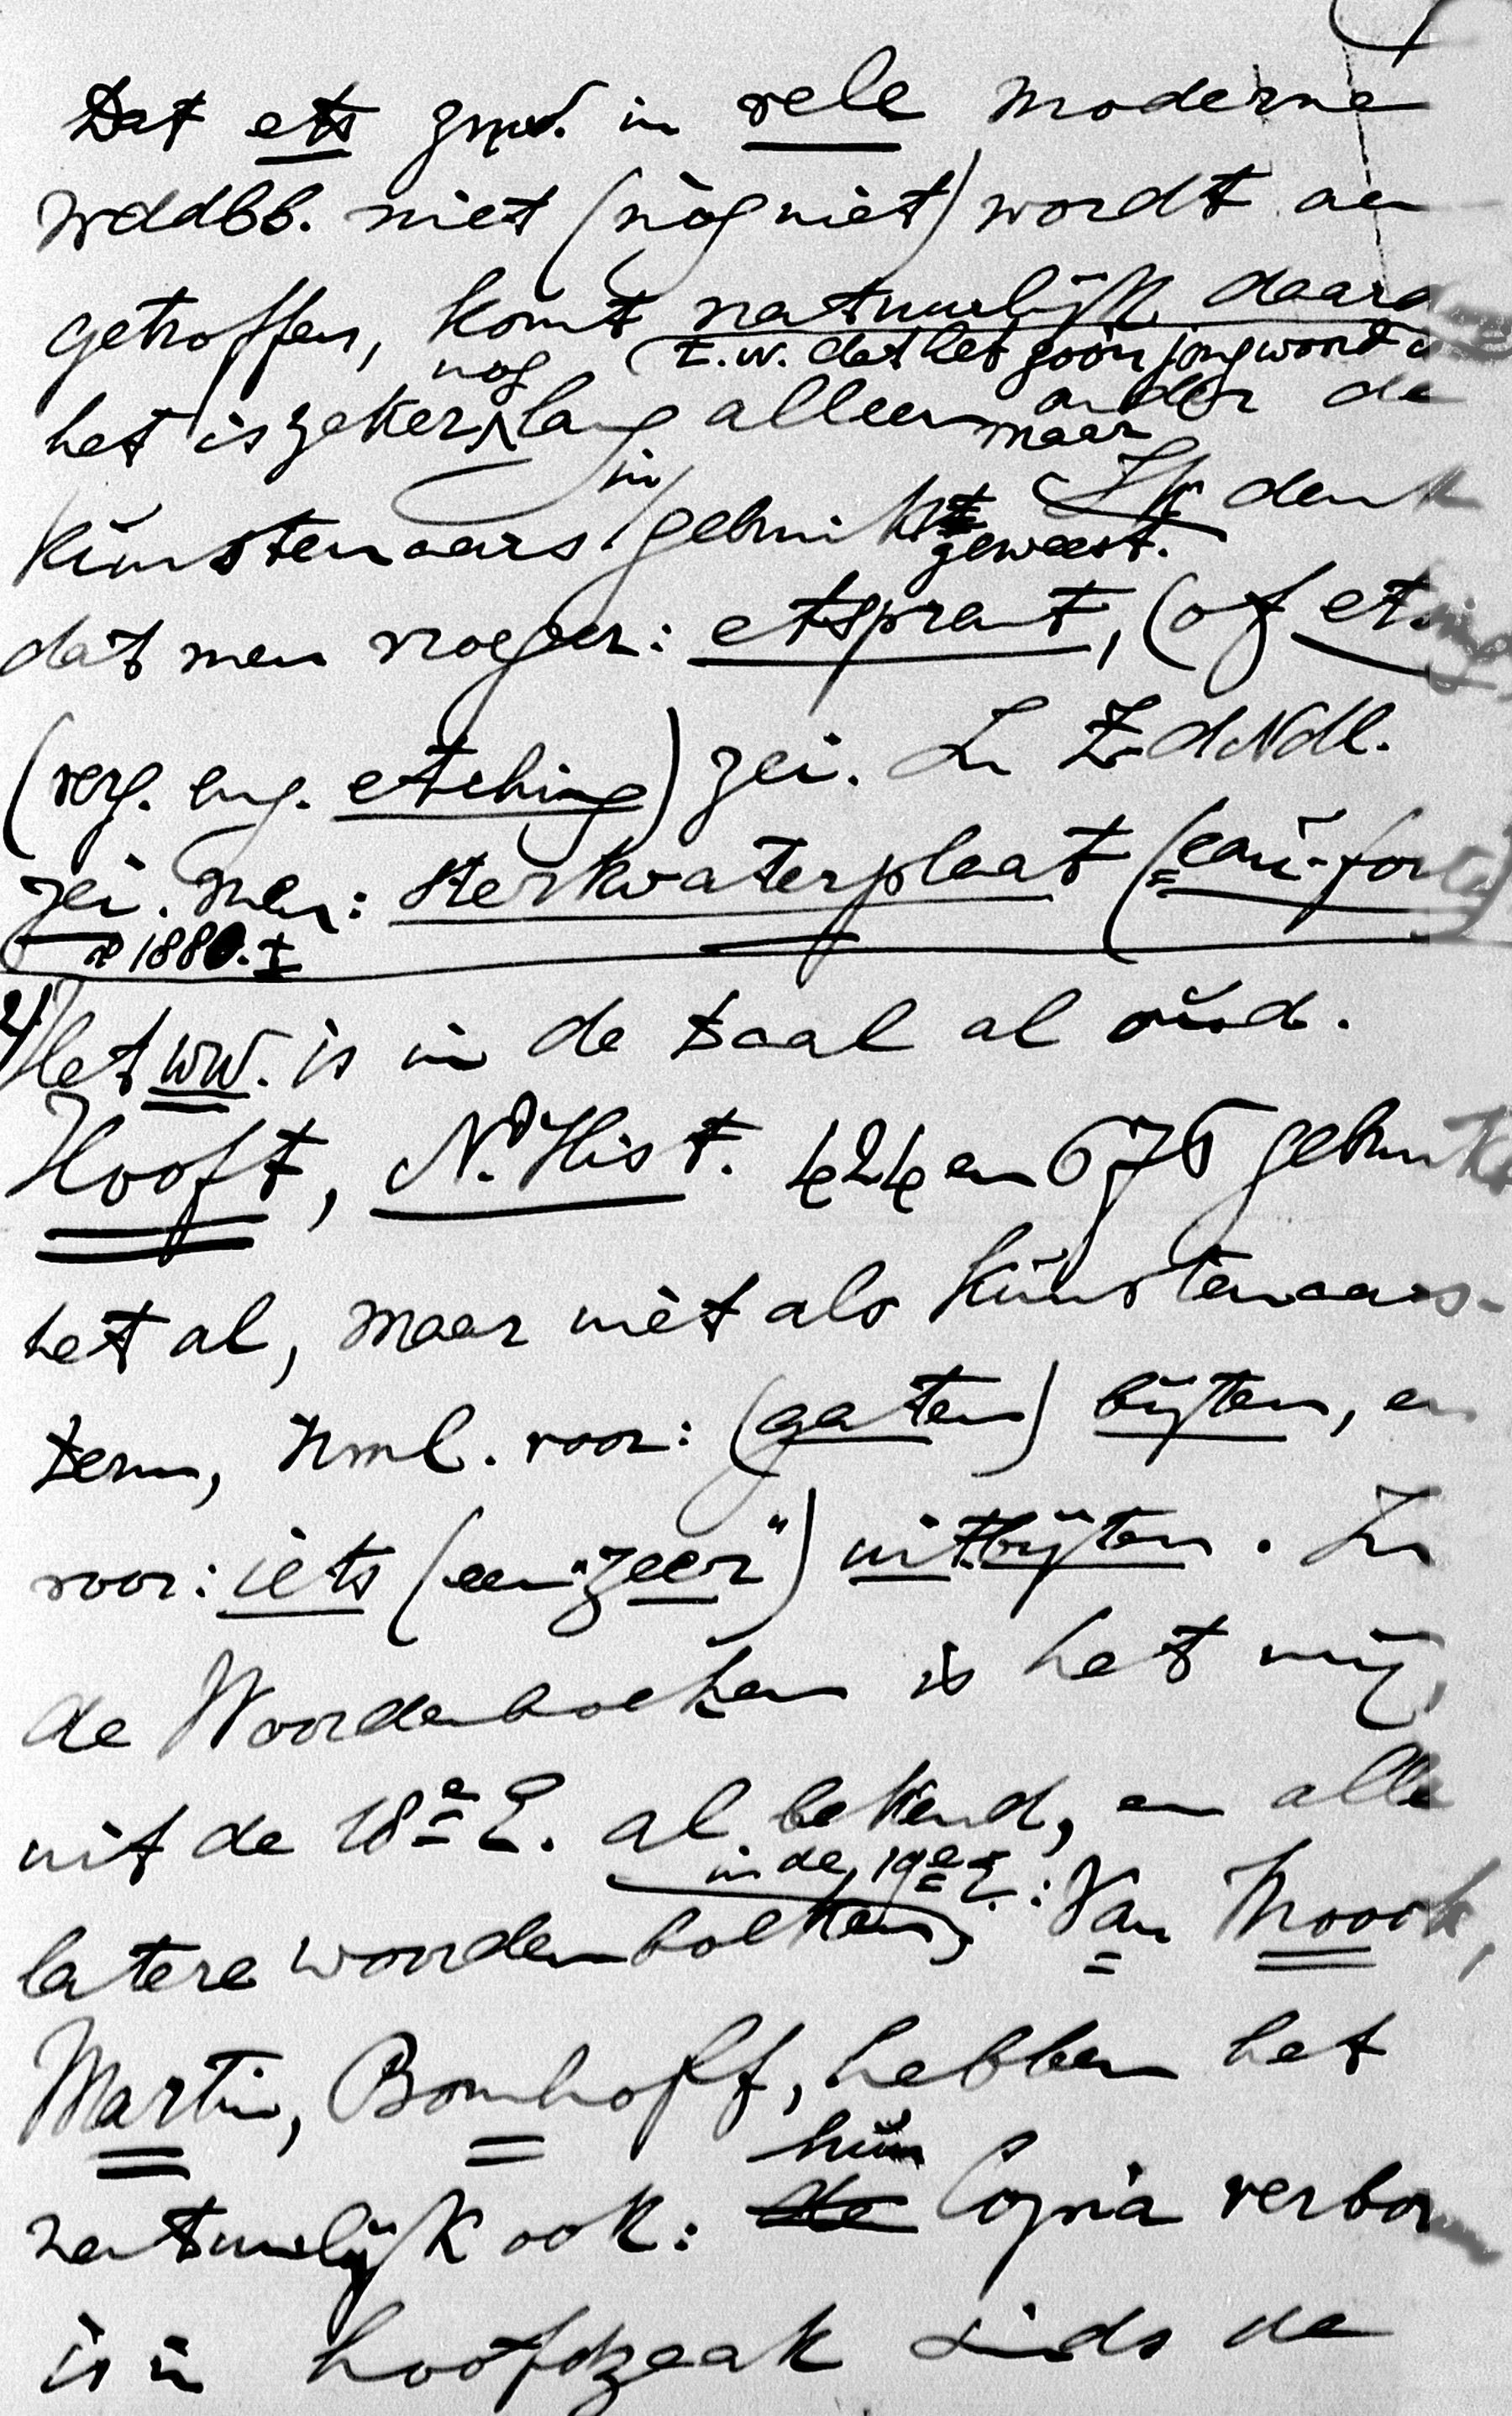 Dat ets znw. in vele moderne
wddbb. niet (nòg niet) wordt aan
getroffen, komt natuurlijk daard
(t.w. dat het zoo'n jong woord
het is zeker nog lang alleen maar onder de
kunstenaars in gebruik geweest. Ik denk
dat men vroeger: etsprent, (of etsing)
(verg. eng. etching) zei. In ZdNdl.
zei men: sterkwaterplaat (= eau-forte)
± 1880.
2/ Het ww. is in de taal al oud.
Hooft, N. Hist. 424 en 676 gebruikt
het al, maar niet als kunstenaars-
term, nml. voor: (gaten) bijten, en
voor: iets (een "zeer") uitbijten. In
de Woordenboeken is het mij
uit de 18e E. al bekend, en alle
latere woordenboeken, in de 19e E.: Van Moock,
Martin, Bomhoff, hebben het
natuurlijk ook: hun Copia verbor
is in hoofdzaak sinds de